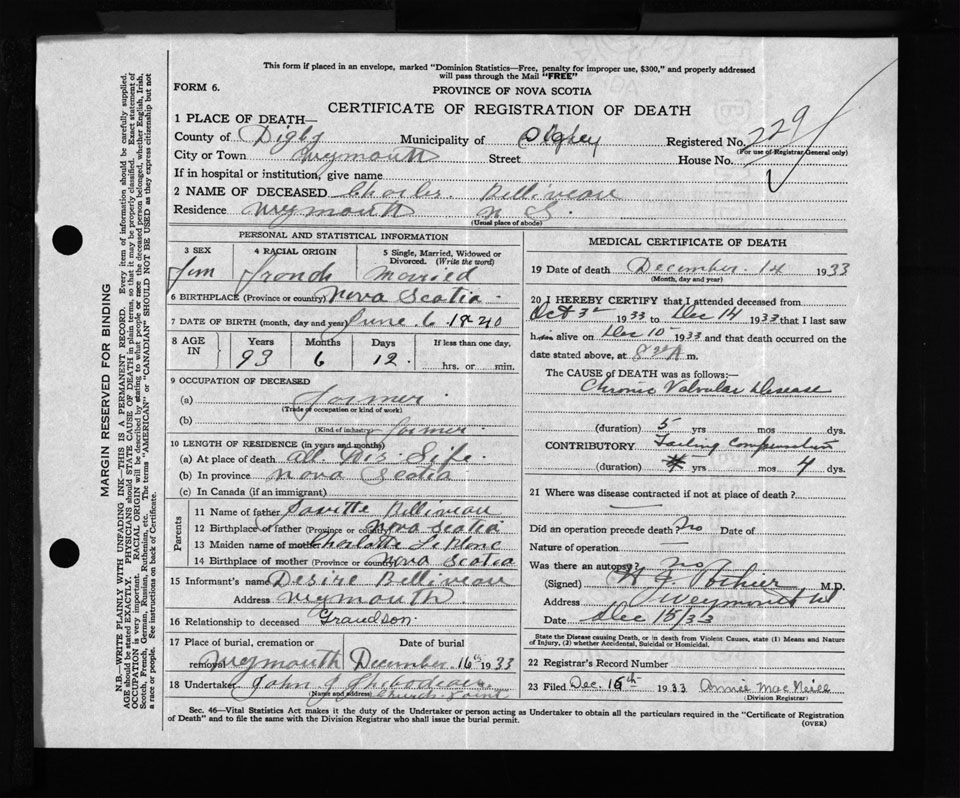 This form if placed in an envelope, marked "Dominion Statistics—Free, penalty for improper use, $300," and properly addressed
will pass through the Mail "FREE"
FORM 6.
PROVINCE OF NOVA SCOTIA
CERTIFICATE OF REGISTRATION OF DEATH
1 PLACE OF DEATH—
County of Digby Municipality of Registered No. 229
(For use of Registrar General only)
City or Town Weymouth Street House No.
If in hospital or institution, give name
2 NAME OF DECEASED Charles. Belliveau
Residence Weymouth N S.
(Usual place of abode)
PERSONAL AND STATISTICAL INFORMATION
3 SEX
4 RACIAL ORIGIN
5 Single, Married, Widowed or Divorced. (Write the word)
Married
6 BIRTHPLACE (Province or country) Nova Scotia.
7 DATE OF BIRTH (month, day and year) June. 6. 1840
8 AGE IN
Years Months Days If less than one day,
93 6 12. hrs. or min.
9 OCCUPATION OF DECEASED
(a) farmer.
(Trade or occupation or kind of work)
(b) farmer.
(Kind of industry)
10 LENGTH OF RESIDENCE (in years and months)
(a) At place of death all. His. Life.
(b) In province Nova Scotia
(c) In Canada (if an immigrant)
Parents
11 Name of father Belliveau
12 Birthplace of father (Province or country) Nova Scotia
13 Maiden name of mother Charlotte Le Blanc
14 Birthplace of mother (Province or country) Nova Scotia
15 Informant's name Desire Belliveau
Address Weymouth.
16 Relationship to deceased Grandson.
17 Place of burial, cremation or removal Date of burial
Weymouth December. 16th 1933
18 Undertaker John J
(Name and address) Church Point
MEDICAL CERTIFICATE OF DEATH
19 Date of death December. 14 1933
(Month, day and year)
20 I HEREBY CERTIFY that I attended deceased from
Oct 1933 to Dec 14 1933 that I last saw
h alive on Dec 10 1933 and that death occurred on the
date stated above, at m.
The CAUSE OF DEATH was as follows:—
Chronic Valvular Disease
(duration) 5 yrs mos dys.
CONTRIBUTORY Failing Compensation
(duration) yrs mos 4 dys.
21 Where was disease contracted if not at place of death?
Did an operation precede death? No Date of
Nature of operation
Was there an autopsy? No
(Signed) M.D.
Address Weymouth
Date Dec 15/33
State the Disease causing Death, or in death from Violent Causes, state (1) Means and Nature
of Injury, (2) whether Accidental, Suicidal or Homicidal.
22 Registrar's Record Number
23 Filed Dec. 15th 1933 Annie MacNeill
(Division Registrar)
Sec. 46—Vital Statistics Act makes it the duty of the Undertaker or person acting as Undertaker to obtain all the particulars required in the "Certificate of Registration
of Death" and to file the same with the Division Registrar who shall issue the burial permit.
(OVER)
MARGIN RESERVED FOR BINDING
N.B.—WRITE PLAINLY WITH UNFADING INK—THIS IS A PERMANENT RECORD. Every item of information should be carefully supplied.
AGE should be stated EXACTLY. PHYSICIANS should STATE CAUSE OF DEATH in plain terms, so that it may be properly classified. Exact statement of
OCCUPATION is very important. RACIAL ORIGIN will be described by stating to what people or race the deceased person belonged, whether English, Irish,
Scotch, French, German, Russian, Ruthenian, etc. The terms "AMERICAN" or "CANADIAN" SHOULD NOT BE USED as they express citizenship but not
a race or people. See instructions on back of Certificate.